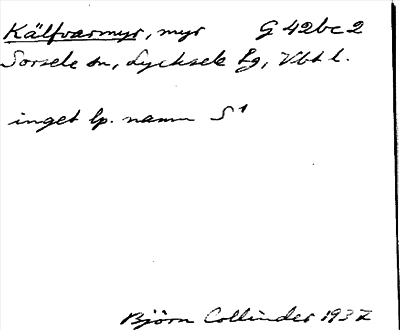 Kälfvasmyr, myr G 42bc2
Sorsele sn, Lycksele Lg, Vbt l.
inget lp. namn S¹
Björn Collinder 1937